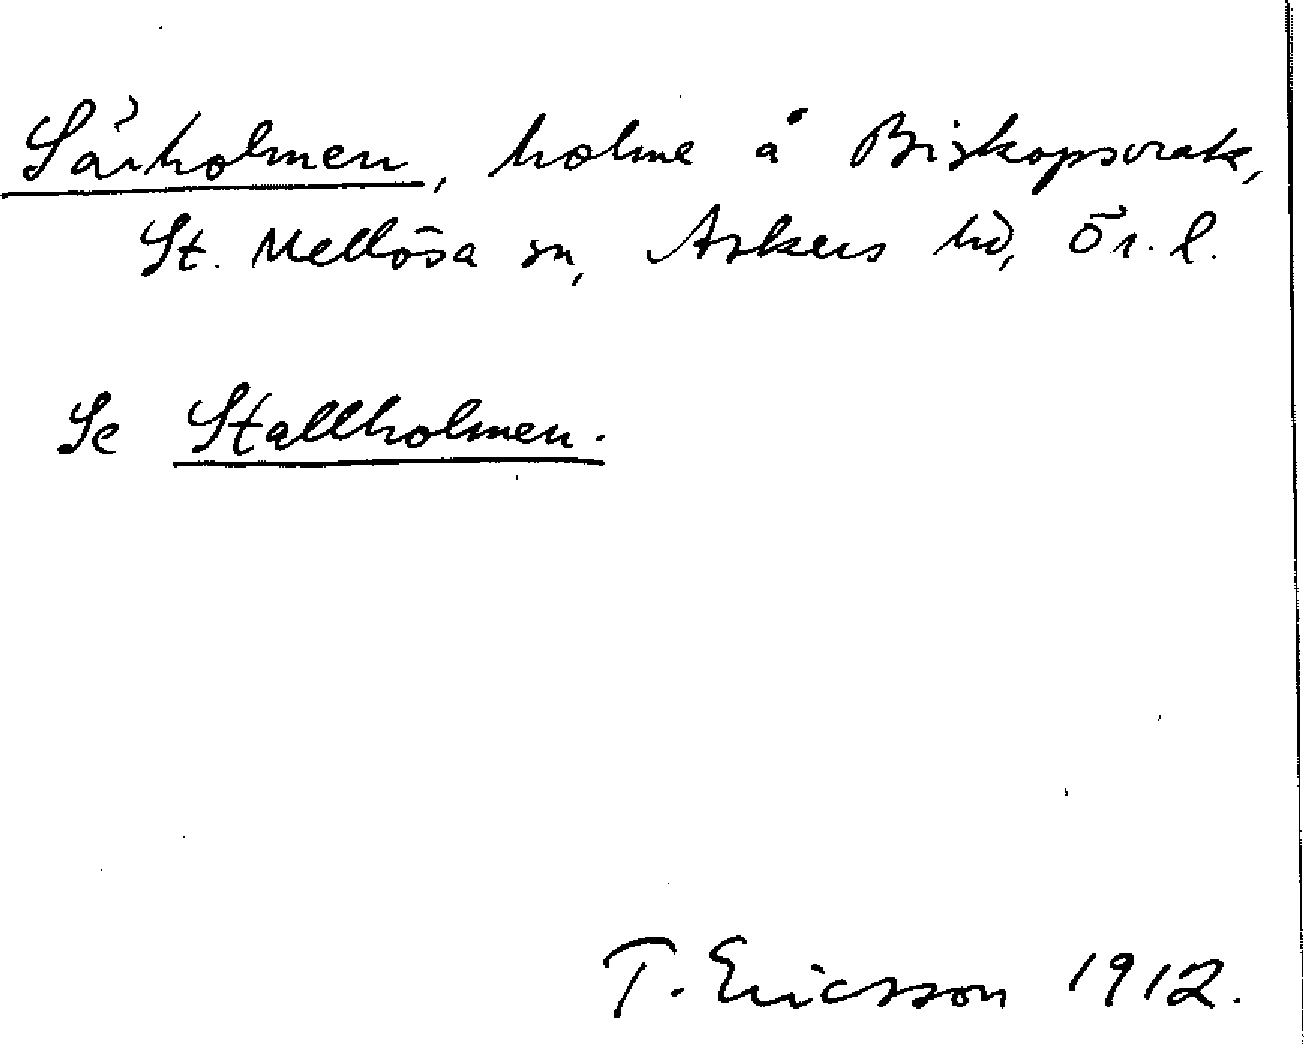 Sårholmen, holme å Biskopsvrak,
St. Mellösa sn, Askers hd, Ör. l.
Se Stallholmen.
T. Ericsson 1912.